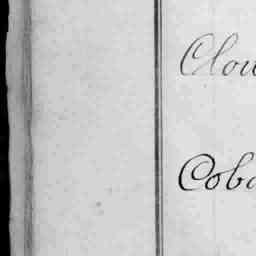 Clou
Coba